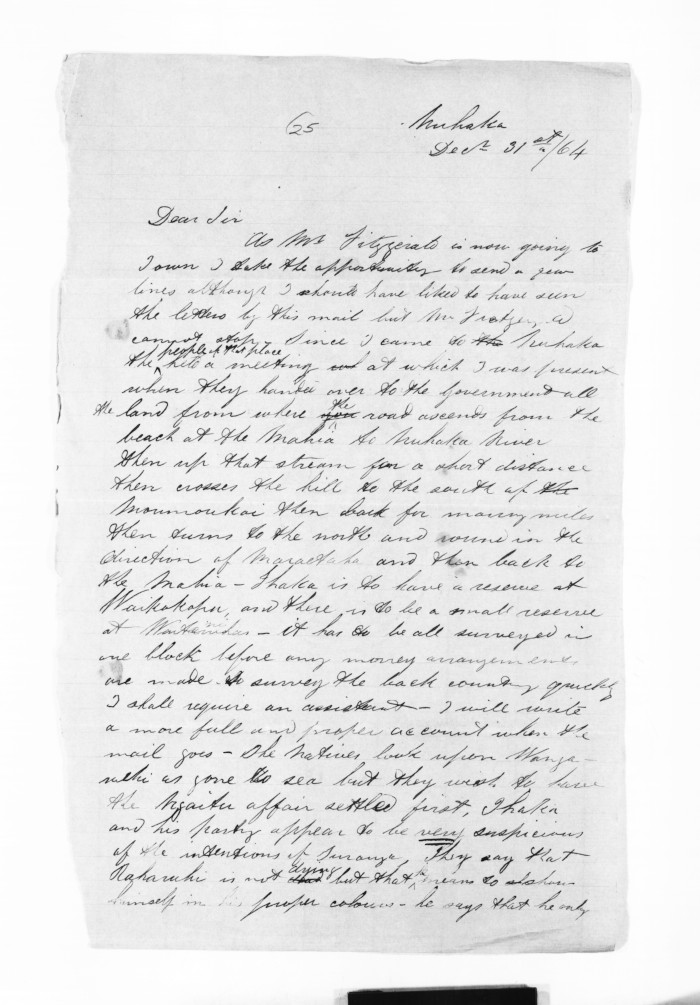 (25
Nuhaka
Decr 31st/64
Dear Sir
As Mr Fitzgerald is now going to
Town I take the opportunity to send a few
lines although I should have liked to have seen
the letters by this mail but Mr Fitzger
cannot stop. Since I came to the Nuhaka
the people of that place held a meeting and at which I was present
when they handed over to the Government all
the land from where the road ascends from the
beach at the Mahia to Nuhaka River
then up that stream for a short distance
then crosses the hill to the south of the
Moumoukai then back for many miles
then turns to the north and round in the
direction of and then back to
the Mahia - Ihaka is to have a reserve at
Waikokopu, and there is to be a small reserve
at - it has to be all surveyed in
one block before any money arrangements
are made. To survey the back country quickly
I shall require an assistant - I will write
a more full and proper account when the
mail goes - The Natives look upon Wanga-
as gone to sea but they wish to have
the affair settled first, Ihaka
and his party appear to be very suspicious
of the intentions of Turanga, They say that
is not dying but that means to show
himself in his proper colours - he says that he only